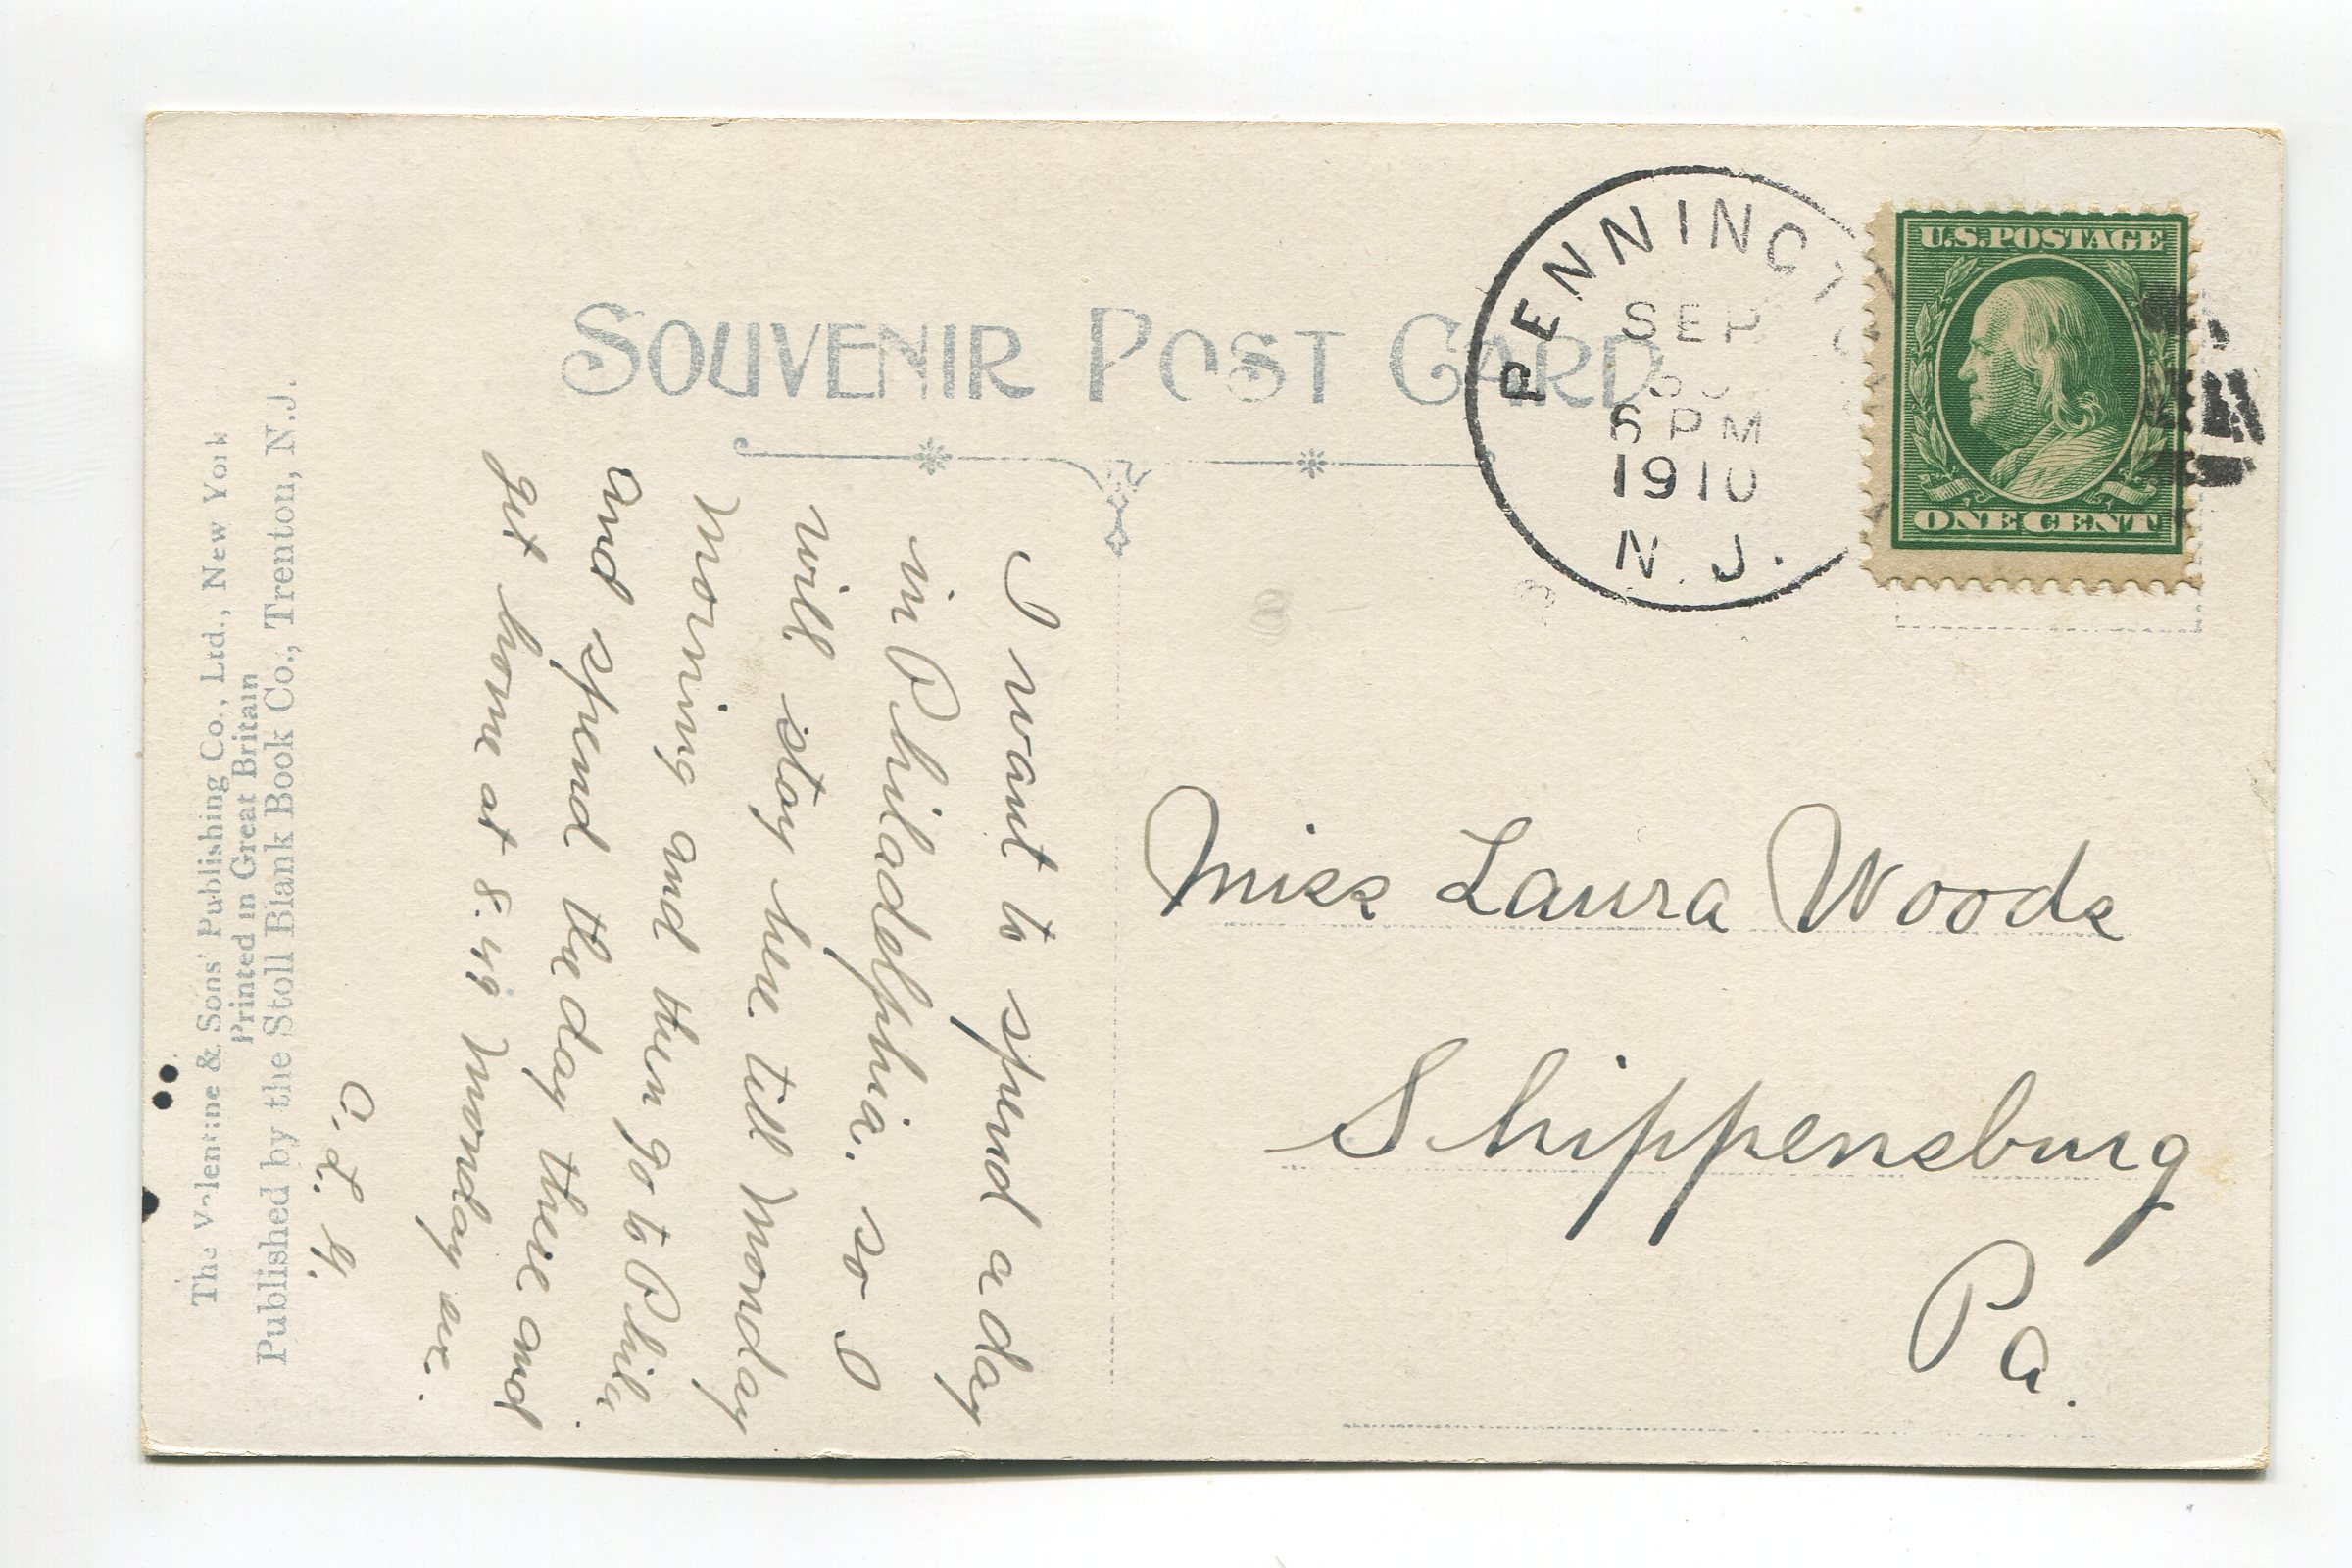 The Valentine & Sons' Publishing Co., Ltd., New York
Printed in Great Britain
Published by the Stoll Blank Book Co., Trenton, N.J.
SOUVENIR POST CARD
PENNINGT
SEP
6 PM
1910
N.J.
U.S.POSTAGE
ONE CENT
I want to spend a day
in Philadelphia. so I
will stay here till Monday
Morning and then go to Phila.
and spend the day there and
get home at 8.49 Monday eve.
C. L. H.
Miss Laura Woods
Shippensburg
Pa.